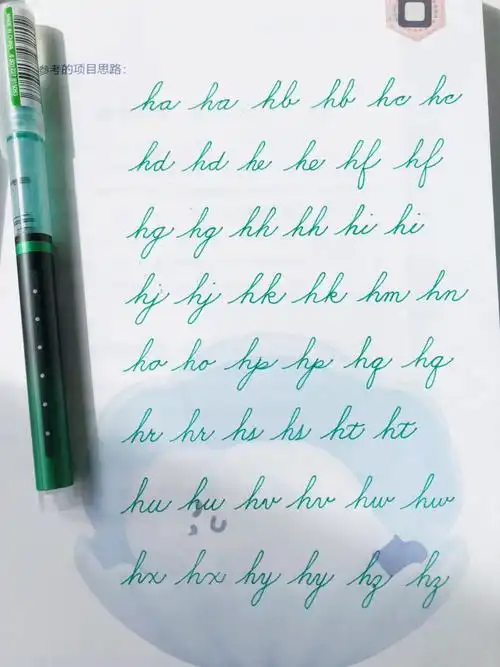 参考的项目思路：
ha ha hb hb hc hc
hd hd he he hf hf
hg hg hh hh hi hi
hj hj hk hk hm hn
ho ho hp hp hq hq
hr hr hs hs ht ht
hu hu hv hv hw hw
hx hx hy hy hz hz